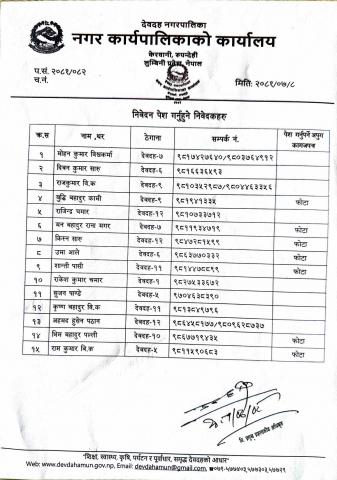 देवदह नगरपालिका
नगर कार्यपालिकाको कार्यालय
केरवानी, रुपन्देही
लुम्बिनी प्रदेश, नेपाल
प.सं. २०८१/०८२
च.नं.
मिति: २०८१/०७/८
निवेदन पेश गर्नुहुने निवेदकहरु
क्र.स नाम ,थर ठेगाना सम्पर्क नं. पेश गर्नुपर्ने अपुग कागजपत्र
१ मोहन कुमार विश्वकर्मा देवदह-७ ९८१७४२७६४०/९८०३७६४९१२
२ दिबन कुमार सारु देवदह-६ ९८१६६३६५९३
३ राजकुमार वि.क देवदह-९ ९८१०३५२९८७/९८०४४६३३५६
४ बुद्धि बहादुर कामी देवदह-९ ९८१९४१३३५ फोटो
५ राजिन्द्र चमार देवदह-१२ ९८१०७३३७१२
६ मन बहादुर राना मगर देवदह-७ ९८११९३४७१९ फोटो
७ किस्न सारु देवदह-१२ ९८४७२८१५९९ फोटो
८ उमा आले देवदह-६ ९८६३७७०३३२ फोटो
९ शान्ती पासी देवदह-११ ९८१४४७८८९९ फोटो
१० राकेश कुमार चमार देवदह-१ ९८२७५३३६७२
११ सुजन पाण्डे देवदह-५ ९७०४६३८३९०
१२ कृष्ण बहादुर वि.क देवदह-११ ९८१३८४९७९६
१३ अहमद हुसेन पठान देवदह-१२ ९८६४५८१७७/९८०९६२८७३७
१४ भिम बहादुर पल्ली देवदह-१० ९८६७७१९४३५ फोटो
१५ राम कुमार वि.क देवदह-५ ९८११५९०६८३ फोटो
"शिक्षा, स्वास्थ्य, कृषि, पर्यटन र पूर्वाधार, समृद्ध देवदहको आधार"
Web: www.devdahamun.gov.np, Email: devdahamun@gmail.com, ☎०७१-५७७४०२,५७७३०३,५७७२९